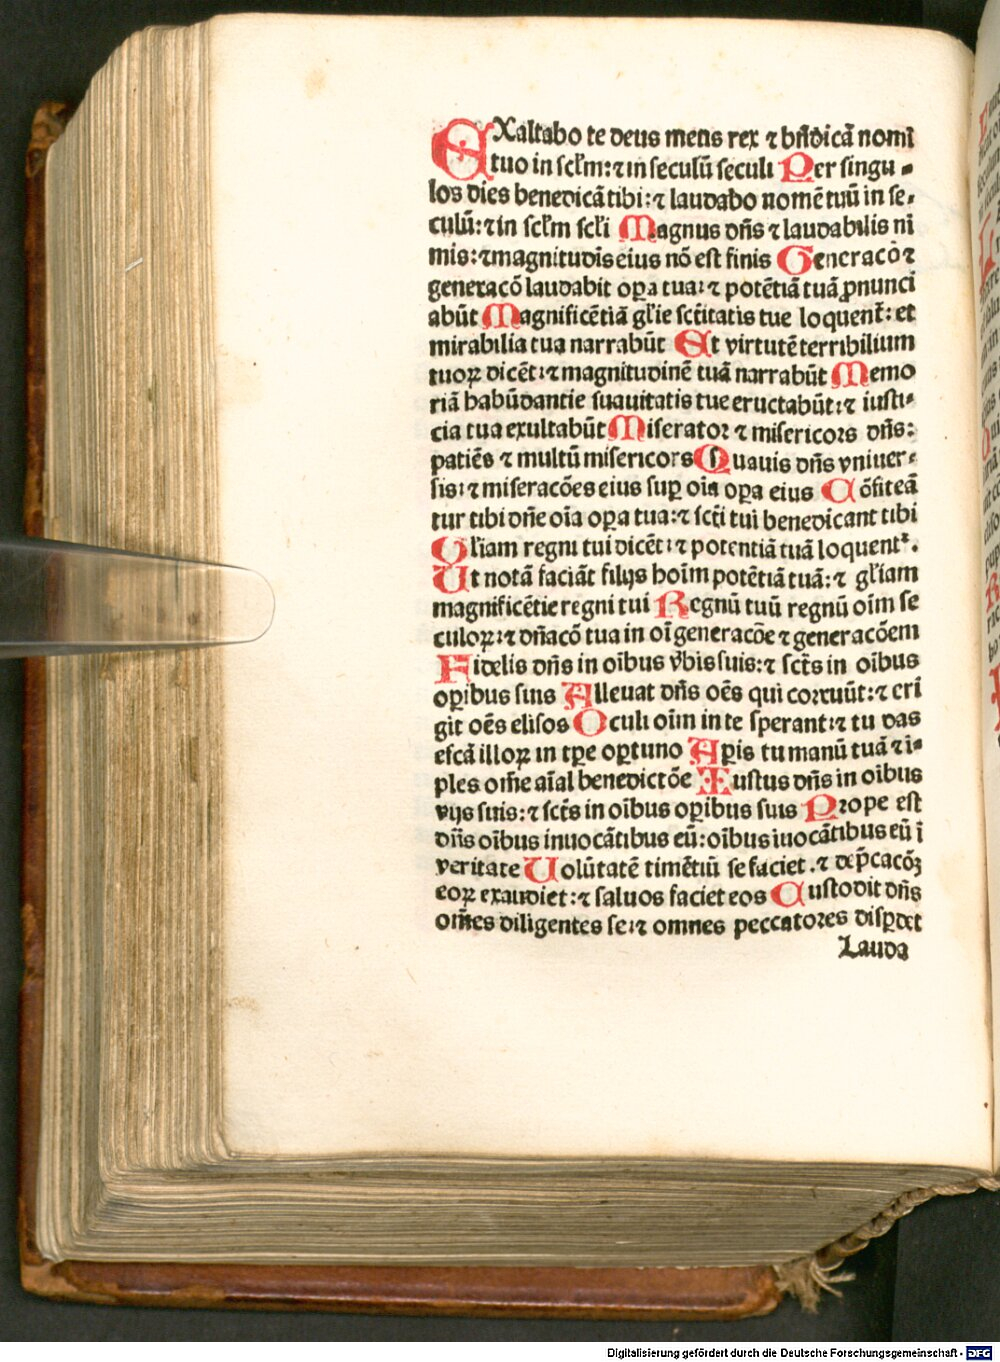 EXaltabo te deus meus rex ⁊ bn̄dicā nomī
tuo in scl̄m:⁊ in seculū seculi Per singu-
los dies benedicā tibi:⁊ laudabo nomē tuū in se-
culū:⁊ in scl̄m scl̄i Magnus dn̄s ⁊ laudabilis ni
mis:⁊ magnitudīs eius nō est finis Generacō ⁊
generacō laudabit oꝑa tua:⁊ potētiā tuā ꝓnunci
abūt Magnificētiā gl̄ie sc̄titatis tue loquent̄: et
mirabilia tua narrabūt Et virtutē terribilium
tuoꝝ dicēt:⁊ magnitudinē tuā narrabūt Memo
riā habūdantie suauitatis tue eructabūt:⁊ iusti-
cia tua exultabūt Miserator ⁊ misericors dn̄s:
patiēs ⁊ multū misericors Quauis dn̄s vniuer-
sis:⁊ miseracōes eius suꝑ oīa oꝑa eius Cōfiteā
tur tibi dn̄e oīa oꝑa tua:⁊ sc̄ti tui benedicant tibi
Gl̄iam regni tui dicēt:⁊ potentiā tuā loquent̄.
Ut notā faciāt filijs hoīm potētiā tuā:⁊ gl̄iam
magnificētie regni tui Regnū tuū regnū oīm se
culoꝝ:⁊ dn̄acō tua in oī generacōe ⁊ generacōem
Fidelis dn̄s in oībus v̄bis suis:⁊ sc̄ts in oībus
oꝑibus suis Alleuat dn̄s oēs qui corruūt:⁊ eri
git oēs elisos Oculi oīm in te sperant:⁊ tu das
escā illoꝝ in tꝑe oꝑtuno Aꝑis tu manū tuā ⁊ ī-
ples om̄e aīal benedictōe Iustus dn̄s in oībus
vijs suis:⁊ sc̄ts in oībus oꝑibus suis Prope est
dn̄s oībus inuocātibus eū:oībus īuocātibus eū ī
veritate Uolūtatē timētiū se faciet.⁊ dep̄cacōꝫ
eoꝝ exaudiet:⁊ saluos faciet eos Custodit dn̄s
om̄es diligentes se:⁊ omnes peccatores disꝑdet
Lauda
Digitalisierung gefördert durch die Deutsche Forschungsgemeinschaft - DFG